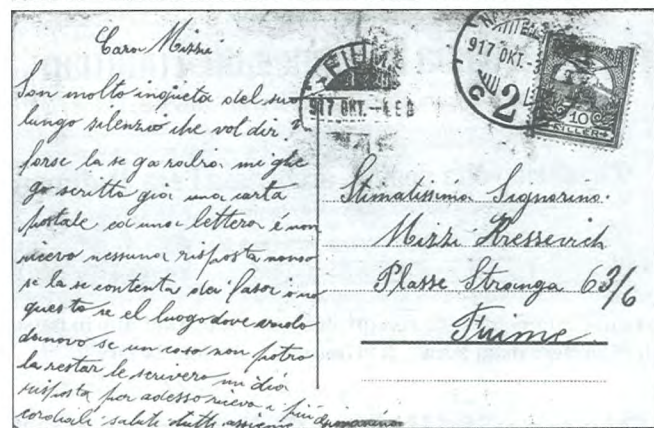 Cara Mizzi
Son molto inqueta del suo
lungo silenzio che vol dir
forse la se ga mi ghe
go scritto gia una carta
postale ed una lettera é non
ricevo nessuna risposta nonso
se la se contenta dei o no
questo se el luogo dove
danno se un caso non potro
la restar le scrivero un dió
risposta por adesso riceva i più
cordiali saluti tutti assieme
FIUME
917 OKT.
917 OKT.
2
10
FILLER
Stimatissima Signorina
Mizzi Kressevich
Plasse Stranga 63/6
Fiume